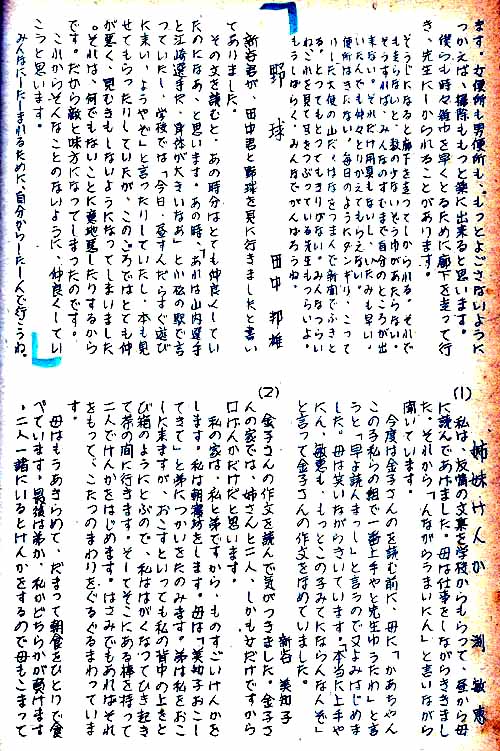 ます。女便所も男便所も、もっとよごさないように
つかえば、掃除ももっと楽に出来ると思います。
僕らも時々雑巾を早くとるために廊下を走って行
き、先生にしかられることがあります。
そうじになると廊下を走ってしかられる。それで
も走らないと、数の少ないぞう巾があたらない。
そうすれば、みんなのすむまで自分のところが出
来ない。それだけ用具もないし、いたみも早い。
いたんでも仲々とりかえてもらえない。
便所はきたない。毎日のようにタンギリ、こって
りした大便の山だ。はなをつまんで新聞でふきと
る。とってもとってもきりがない。みんなつらい。
ねごれを見て耳をつぶっている先生もつらい。
もうしばらく、みんなでがんばろうね。
野球
田中邦雄
新谷君が、田中君と野球を見に行きましたと書い
てありました。
その文を読むと、あの時分はとても仲良くしてい
たのになあ、と思います。あの時、「あれは山内選手
と江崎選手だ、身体が大きいなあ」と小松の駅で言
っていたし、学校では「今日、昼すんだらすぐ遊び
に来い、ようやぞ」と言ったりしていたし、本も見
せてもらったりしていたが、このごろではとても仲
が悪く、見むきもしないようになってしまいました
。それは、何でもないことに意地悪したりするから
です。だから敵と味方になってしまったのです。
これからそんなことのないように、仲良くしてい
こうと思います。
みんなにしたしまれるために、自分からしたしんで行こうね。
姉妹けんか
渕敏恵
(1)
私は、友情の文集を学校からもらって、昼から母
に読んであげました。母は仕事をしながらききまし
た。それから「んながらうまいにん」と言いながら
聞いています。
今度は金子さんのを読む前に、母に「かあちゃん
この子私らの組で一番上手やと先生ゆうたわ」と言
うと「早よ読んまっし」と言うので又よみはじめま
した。母は笑いながらきいています。「本当に上手や
にん、敏恵も、もっとこの子みてにならんなんぞ」
と言って金子さんの作文をほめていました。
(2)
新谷美知子
金子さんの作文を読んで気がつきました。金子さ
んの家では、姉さんと二人、しかも女だけですから
口げんかだけだと思います。
私の家は、私と弟ですから、ものすごいけんかを
します。私は朝寝坊をします。母は「美知子おこし
てきて」と弟につかいをたのみます。弟は私をおこ
しに来ますが、おこすといっても私の背中の上をと
び箱のようにとぶので、私ははがくなってひき起き
て茶の間に行きます。そしてそこにある棒を持って
二人でけんかをはじめます。はさみでもあればそれ
をもって、こたつのまわりをぐるぐるまわっていま
す。
母はもうあきらめて、だまって朝食をひとりで食
べています。最後は弟か、私かどちらかが負けます
。二人一緒にいるとけんかをするので母もこまって